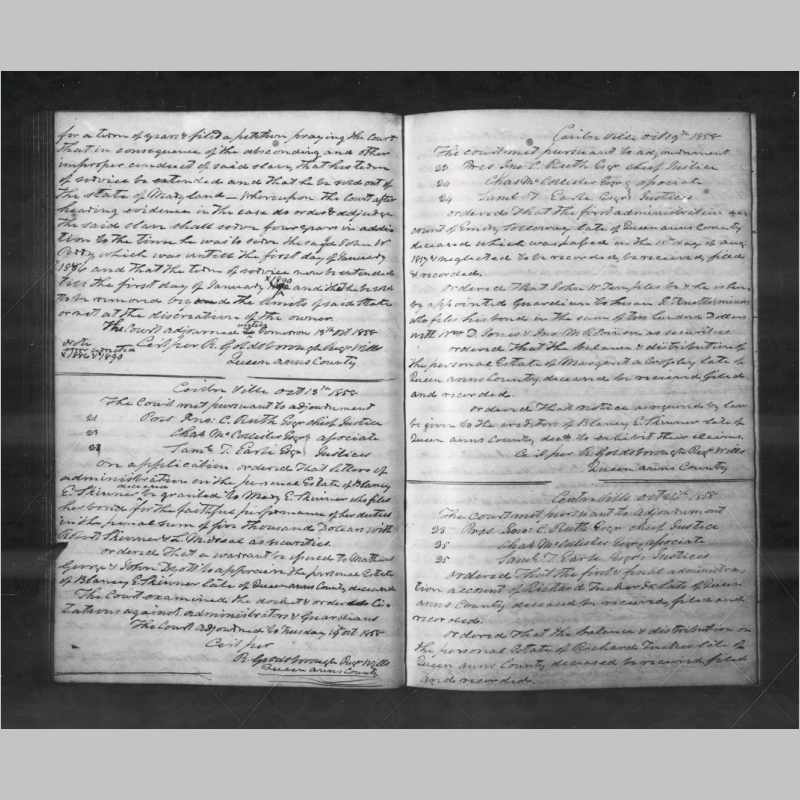 for a term of years & filed a petition praying the Court
that in consequence of the absconding and other
improper conduct of said slave, that his term
of service be extended and that he be sold out of
the state of Maryland — Whereupon the Court after
hearing evidence in the case do order & adjudge
the said slave shall serve four years in addi
tion to the time he was to serve the said John W
which was untill the first day of January
1886 and that the term of service now be extended
till the first day of January 1890 and that he be sold
to be removed beyond the limits of said State
or not at the discretion of the owner.
The Court adjourned untill tomorrow 13th Oct 1858
Cert per R. Goldsborough Regr Wills
Queen Anns County
Centre Ville Oct 13th 1858
The Court met pursuant to adjournment
Pres Jno. C. Ruth Esqr chief Justice
Chas McCollister Esqr associate
Saml. T. Earle Esqr Justices
On application ordered that letters of
administration on the personal Estate of Blaney
E. Skinner deceased be granted to Mary E. Skinner who files
her bond for the faithful performance of her duties
in the penal sum of five thousand Dollars with
Skinner & as securities
Ordered that a warrant be issued to
George & John to appraise the personal Estate
of Blaney E Skinner late of Queen anns County deceased
The Court examined the docket & ordered Ci
tations against administrators & Guardians
The Court adjourned to Tuesday 19th Oct 1858
Cert per
R. Goldsborough Regr Wills
Queen anns County
Centre Ville Oct 19th 1858
The Court met pursuant to adjournment
Pres Jno. C. Ruth Esqr chief Justice
24 Chas McCollister Esqr associate
24 Saml. T. Earle Esqr Justices
Ordered that the first administration ac
count of late of Queen anns County
deceased which was passed on the day of aug
1857 & neglected to be recorded, be received, filed
& recorded.
Ordered that John W. Temple be & he is here
by appointed Guardian to Susan E.
who files his bond in the sum of two hundred Dollars
with Wm D. Jones & Jno. as securities
Ordered that the balance & distribution of
the personal Estate of Margaret A. late of
Queen anns County deceased be received filed
and recorded.
Ordered that notice as required by law
be given to the creditors of Blaney E Skinner late of
Queen anns County decd. to exhibit their claims.
Cert per R. Goldsborough Regr Wills
Queen anns County
Centre Ville Oct 1858
The Court met pursuant to adjournment
25 Pres Jno. C. Ruth Esqr chief Justice
25 Chas McCollister Esqr associate
25 Saml. T. Earle Esqr Justices
Ordered that the first & final administra
tion account of Richard Tucker late of Queen
anns County deceased be received, filed and
recorded.
Ordered that the balance & distribution on
the personal Estate of Richard Tucker late of
Queen anns County deceased be received, filed
and recorded.